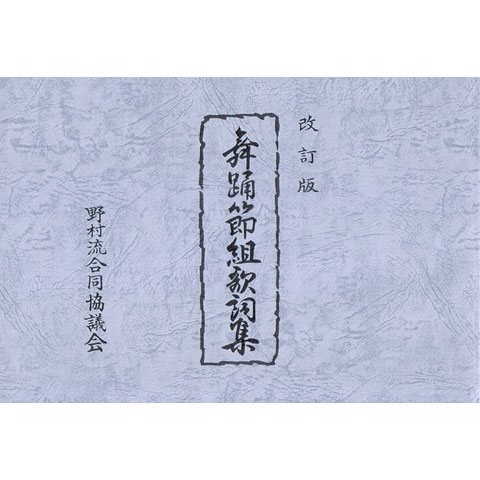 改訂版
舞踊節組歌詞集
野村流合同協議会